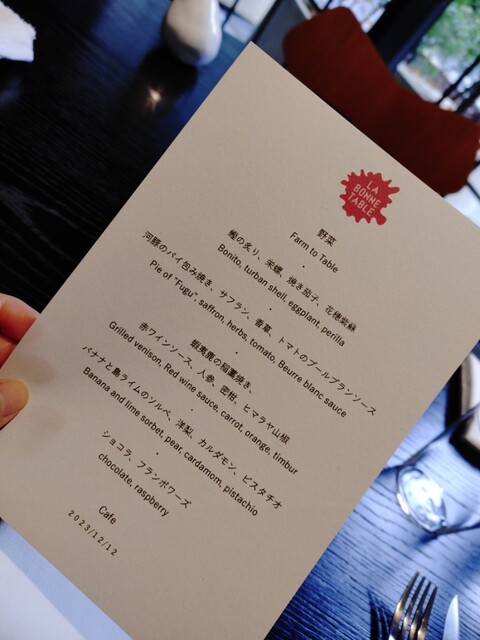 LA
BONNE
TABLE
野菜
Farm to Table
・
鰹の炙り、栄螺、焼き茄子、花穂紫蘇
Bonito, turban shell, eggplant, perilla
・
河豚のパイ包み焼き、サフラン、香草、トマトのブールブランソース
Pie of "Fugu", saffron, herbs, tomato, Beurre blanc sauce
・
蝦夷鹿の稲藁焼き、
赤ワインソース、人参、蜜柑、ヒマラヤ山椒
Grilled venison, Red wine sauce, carrot, orange, timbur
・
バナナと島ライムのソルベ、洋梨、カルダモン、ピスタチオ
Banana and lime sorbet, pear, cardamom, pistachio
・
ショコラ、フランボワーズ
chocolate, raspberry
Cafe
2023/12/12